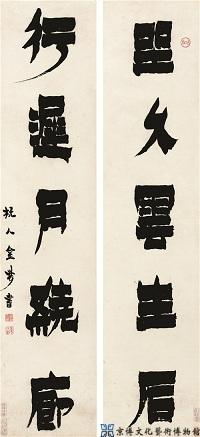 坐久雲生后
行遲月繞廊
杭人金農書
京博文化藝術博物館